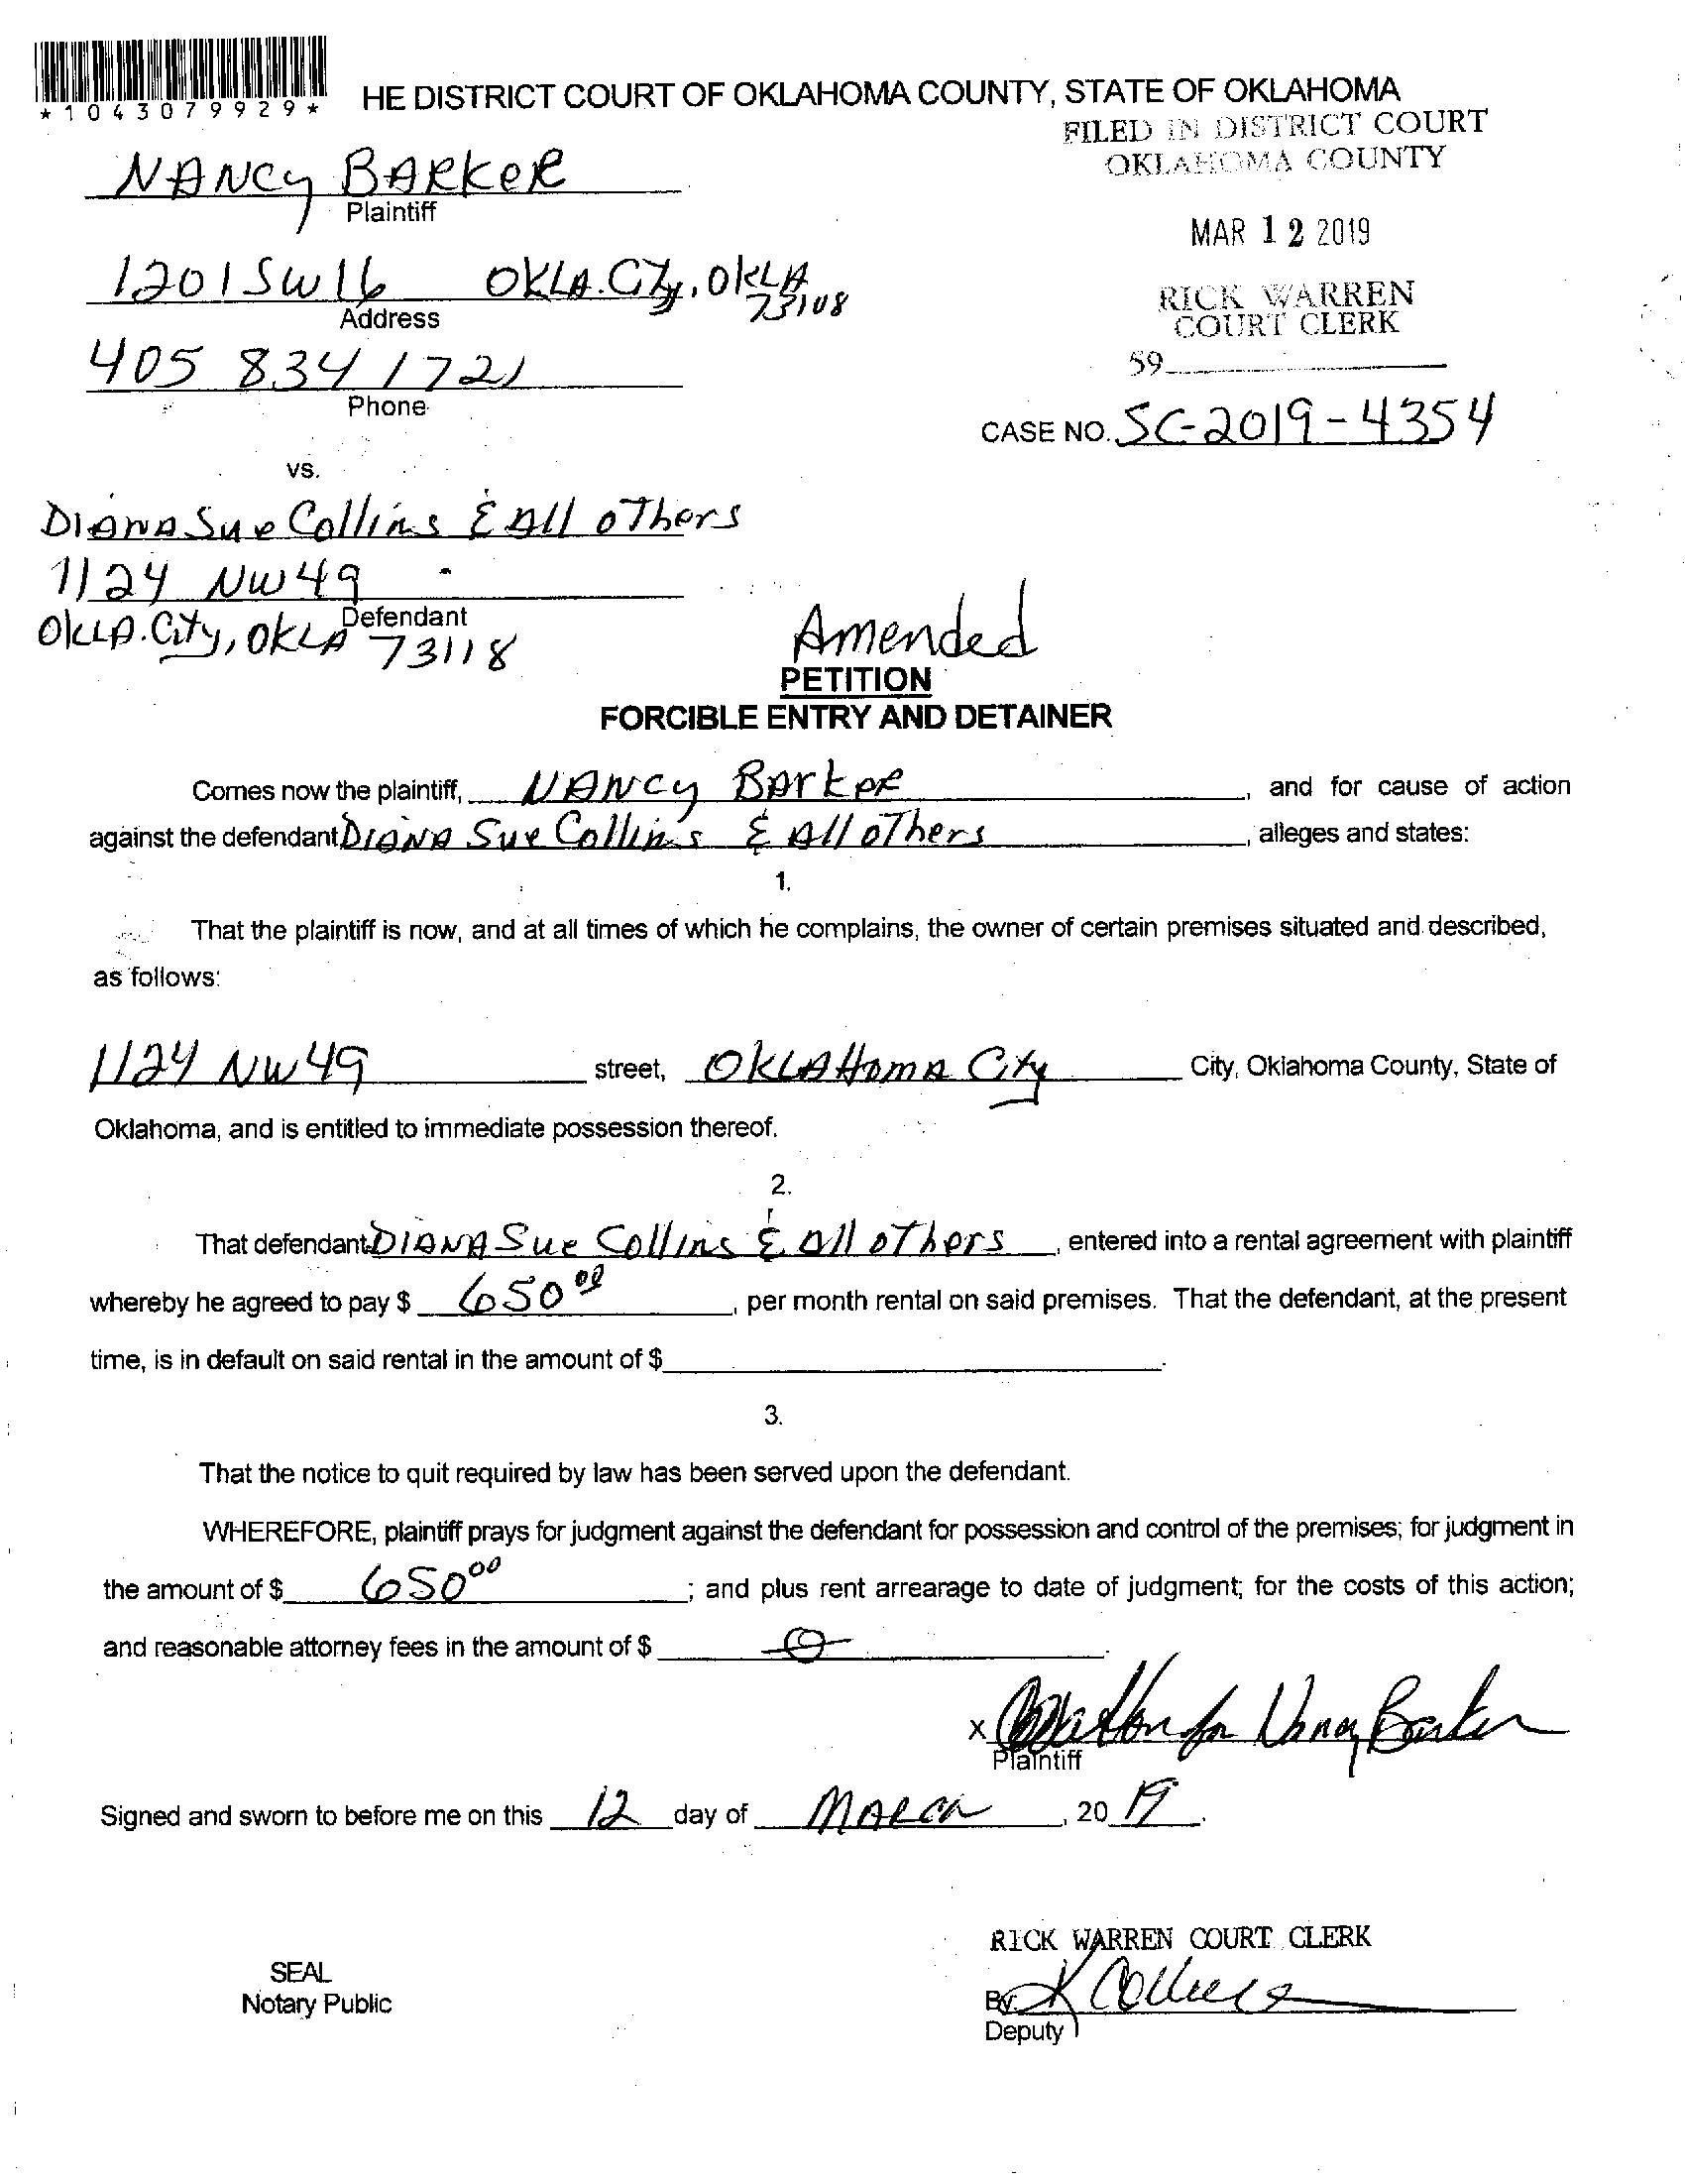 *1043079929*
HE DISTRICT COURT OF OKLAHOMA COUNTY, STATE OF OKLAHOMA
FILED IN DISTRICT COURT
OKLAHOMA COUNTY
NANCy BARKER
Plaintiff
MAR 12 2019
1201 SW 16 OKLA. CTy, OKLA 73108
Address
RICK WARREN
COURT CLERK
405 834 1721
Phone
59
CASE NO. SC-2019-4354
vs.
DIANA Sue Collins & All oThers
1124 NW 49
Defendant
OKLA. City, OKLA 73118
Amended
PETITION
FORCIBLE ENTRY AND DETAINER
Comes now the plaintiff, NANCy BArkeR, and for cause of action
against the defendant DIANA Sue Collins & All oThers, alleges and states:
1.
That the plaintiff is now, and at all times of which he complains, the owner of certain premises situated and described,
as follows:
1124 NW 49 street, OKLAHomA City City, Oklahoma County, State of
Oklahoma, and is entitled to immediate possession thereof.
2.
That defendant DIANA Sue Collins & All oThers, entered into a rental agreement with plaintiff
whereby he agreed to pay $ 650 00, per month rental on said premises. That the defendant, at the present
time, is in default on said rental in the amount of $.
3.
That the notice to quit required by law has been served upon the defendant.
WHEREFORE, plaintiff prays for judgment against the defendant for possession and control of the premises; for judgment in
the amount of $ 650 00; and plus rent arrearage to date of judgment; for the costs of this action;
and reasonable attorney fees in the amount of $ 0.
X for Nancy Barker
Plaintiff
Signed and sworn to before me on this 12 day of MARCh, 20 19.
RICK WARREN COURT CLERK
SEAL
Notary Public
By: K
Deputy